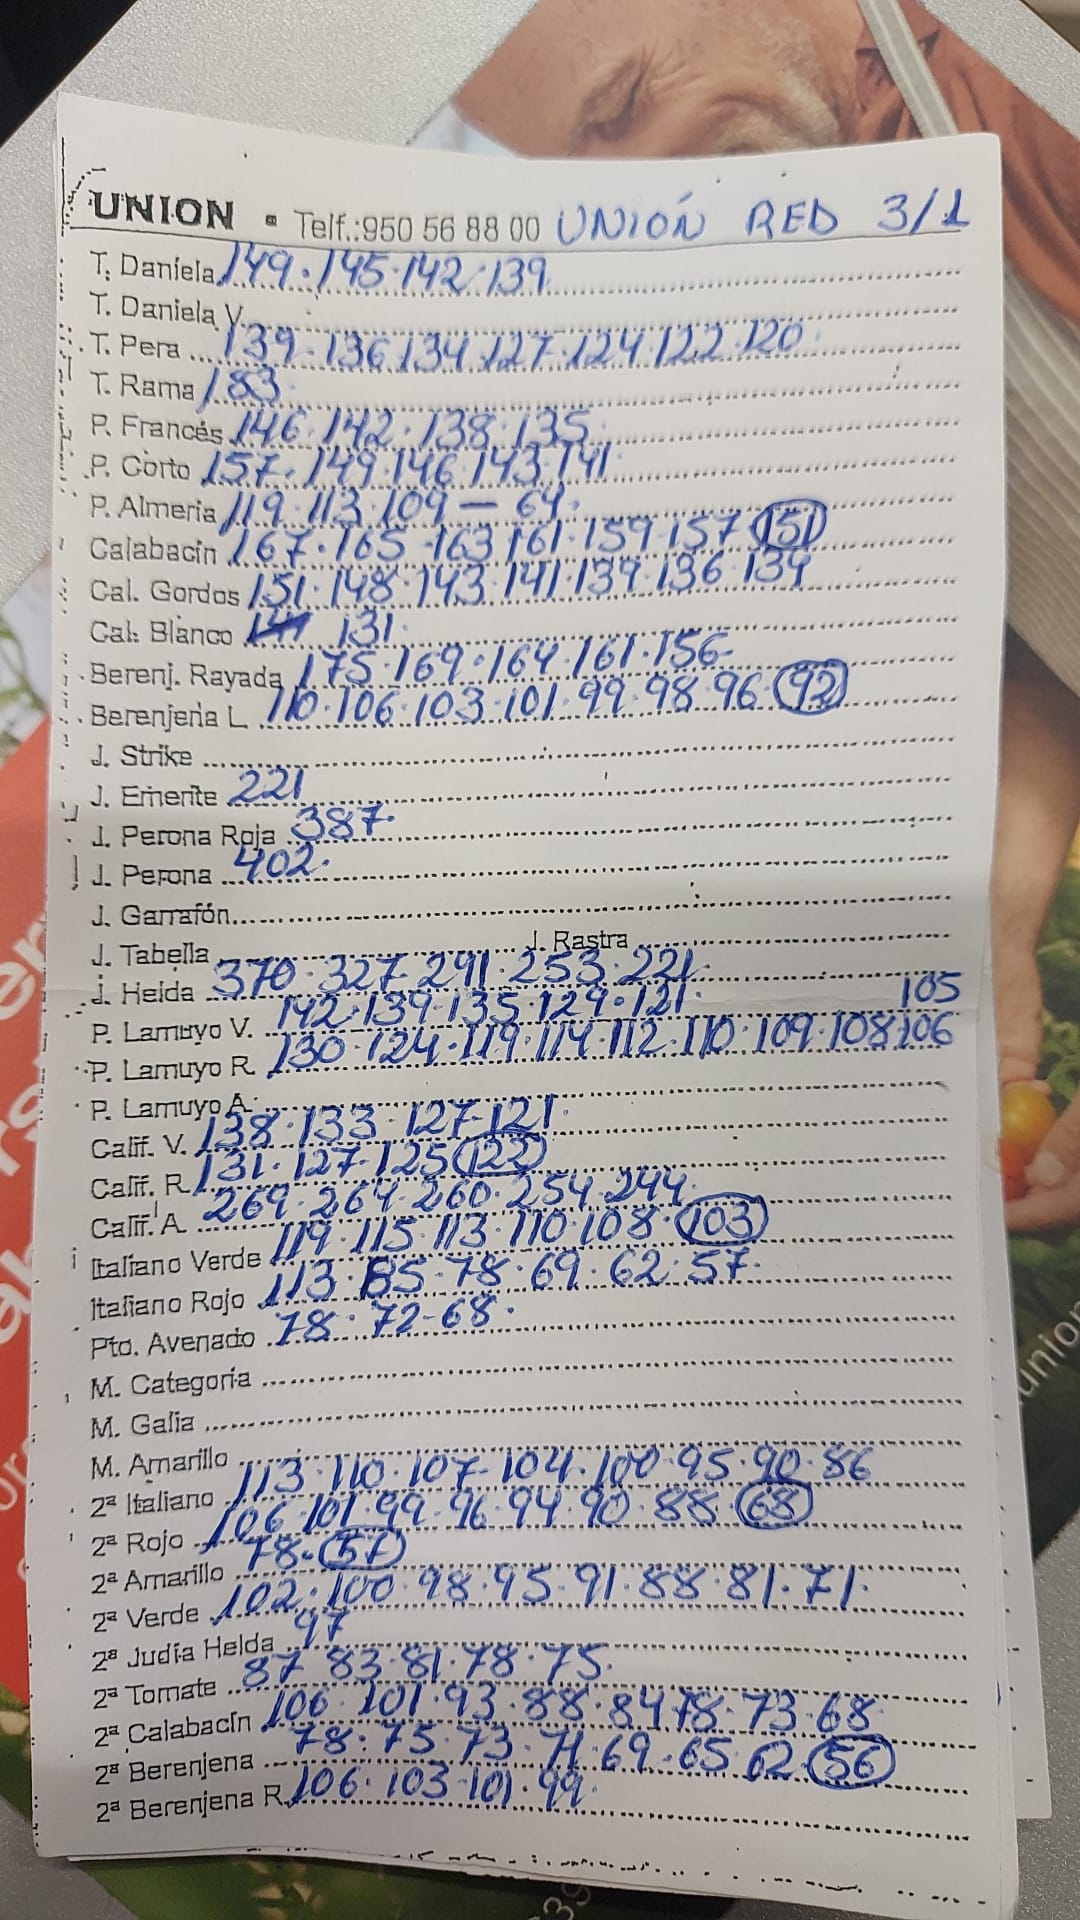 UNION - Telf.:950 56 88 00 UNIÓN RED 3/1
T. Daniela 149.145.142.139
T. Daniela V.
T. Pera 139.136.134.127.124.122.120
T. Rama 183
P. Francés 146.142.138.135
P. Corto 157.149.146.143.141
P. Almeria 119.113.109-64.
Calabacín 167.165-163 161.159.157 151
Cal. Gordos 151.148.143.141.139.136.134
Cal. Blanco 131.
Berenj. Rayada 175.169.164.161.156
Berenjena L. 110.106.103.101.99.98.96.92
J. Strike
J. Emerite 221
J. Perona Roja 387.
J. Perona 402.
J. Garrafón
J. Tabella J. Rastra
J. Helda 370.327.291.253.221.
P. Lamuyo V. 142.139.135.129.121. 105
P. Lamuyo R. 130.124.119.114.112.110.109.108.106
P. Lamuyo A.
Calif. V. 138.133.127-121.
Calif. R. 131.127.125 122
Calif. A. 269.264.260.254.244.
Italiano Verde 119.115.113.110.108.103
Italiano Rojo 113.85-78.69.62.57.
Pto. Avenado 78.72-68.
M. Categoria
M. Galia
M. Amarillo
2ª Italiano 113.110.107-104.100.95.90.86
2ª Rojo 106.101.99.96.94.90.88 68
2ª Amarillo 78.57
2ª Verde 102.100.98.95.91.88.81.71.
2ª Judía Helda 97
2ª Tomate 87 83.81.78.75.
2ª Calabacín 106.101.93.88.84 78.73.68
2ª Berenjena 78.75.73.71.69.65.62.56
2ª Berenjena R. 106.103-101.99.
union